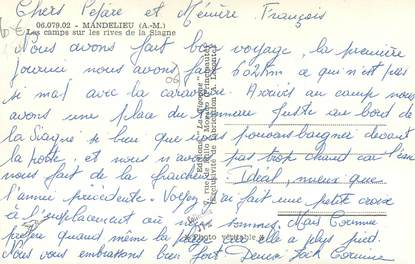 Chers Pépère et Mémère. François
6€
06.079.02 - MANDELIEU (A.-M.)
Les camps sur les rives de la Siagne
Nous avons fait bon voyage, la première
journée nous avons fait km ce qui n'est pas
si mal avec la caravane. Arrivé au camp nous
avons une place du tonnerre juste au bord de
la Siagne si bien que nous pouvons baigner devant
la porte, et nous n'avons pas trop chaud car l'eau
nous fait de la fraicheur. Idéal, mieux que
l'année précédente. Voyez on a fait une petite croix
à l'emplacement où nous sommes. Mais Corinne
préfère quand même la car elle a plus pied.
Nous vous embrassons bien fort Jack Corinne
Editions "La Cigogne"
Photo véritable